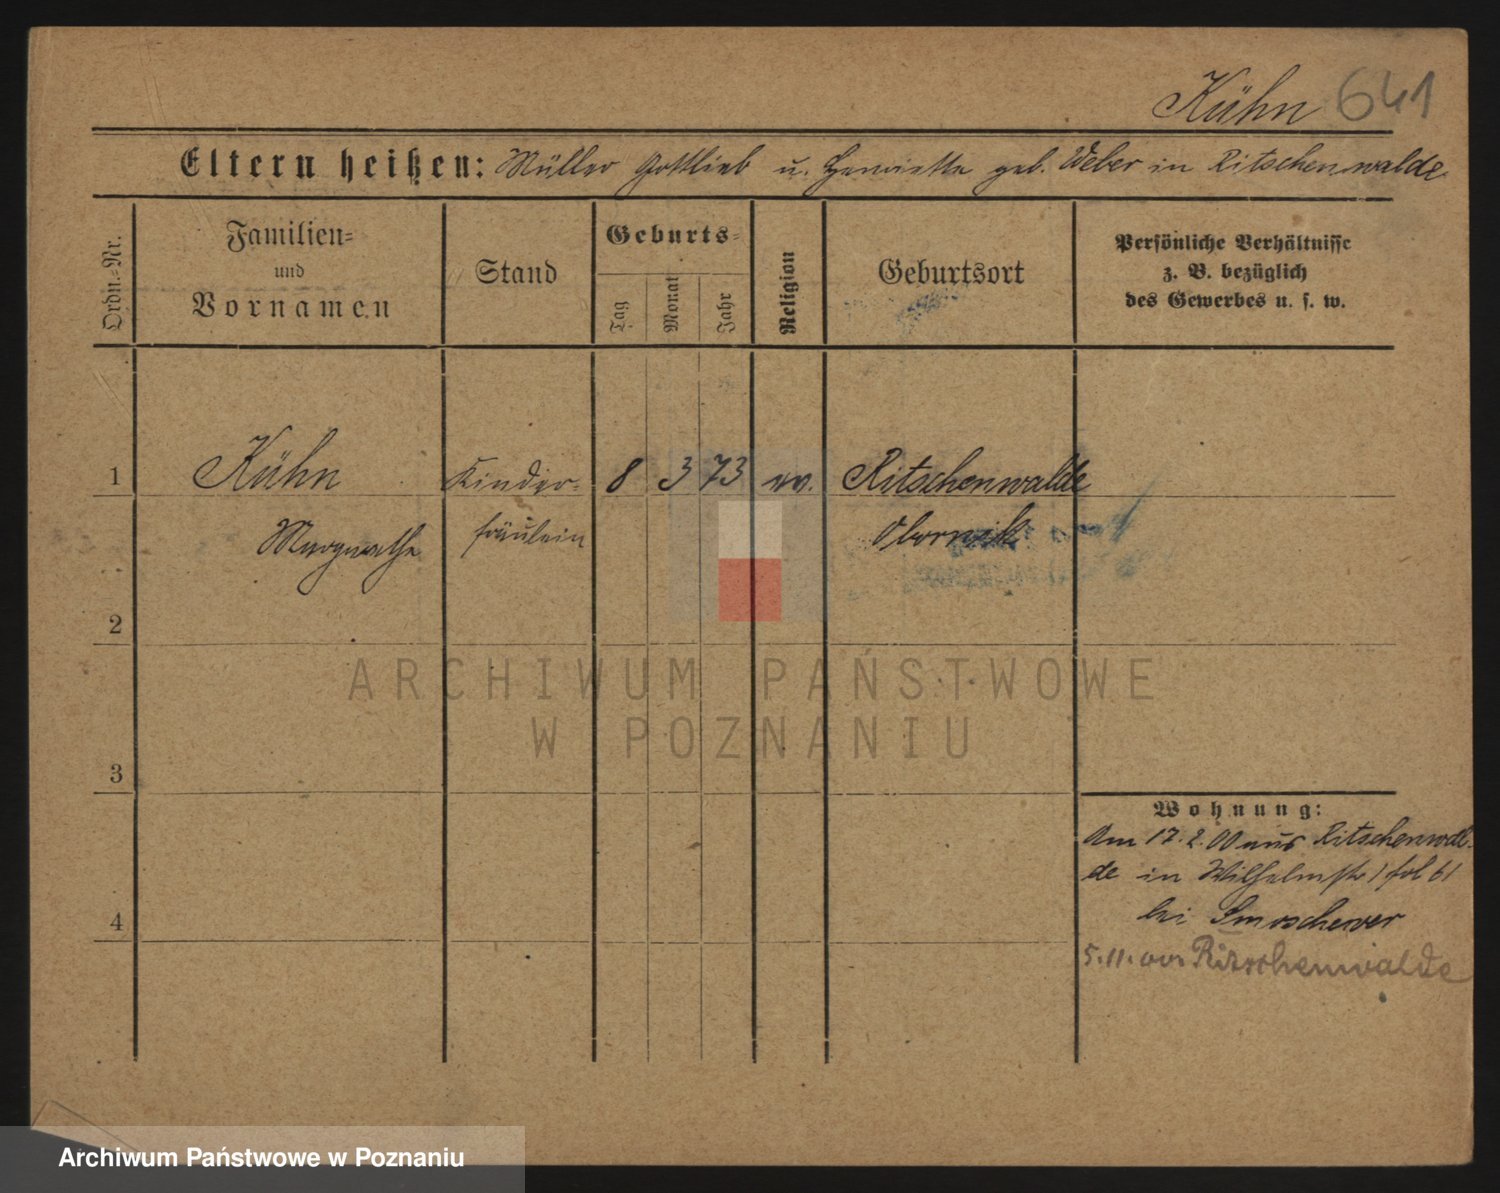 Kühn 641
Eltern heißen: Müller Gottlieb u. Henriette geb. Weber in Ritschenwalde
Ordn.-Nr.
Familien- und Vornamen
Stand
Geburts-
Tag
Monat
Jahr
Religion
Geburtsort
Persönliche Verhältnisse
z. B. bezüglich
des Gewerbes u. s. w.
1 Kühn Kinder- 8 3 73 ev. Ritschenwalde
Margarethe fräulein Obornik
2
3
4
Wohnung:
Am 17.2.00 aus Ritschenwal-
de in Wilhelmstr 1 fol 61
bei Smoschewer
5.11. Ritschenwalde
ARCHIWUM PAŃSTWOWE
W POZNANIU
Archiwum Państwowe w Poznaniu